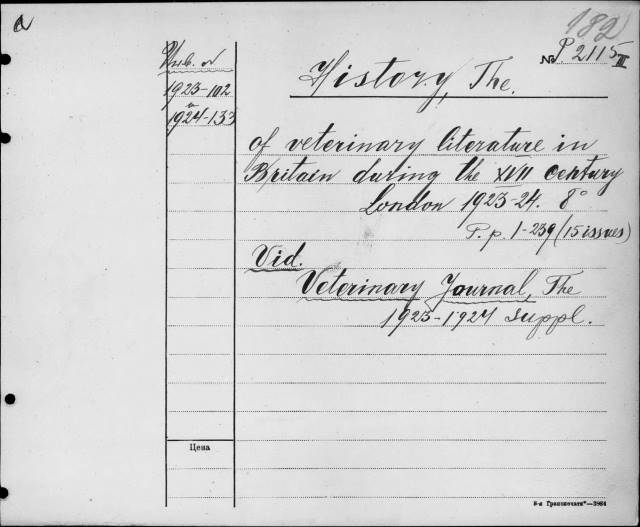 a
182
№ P 2115 II
Инв. №
1923-102
1924-133
History, The.
of veterinary literature in
Britain during the XVII century
London 1923-24. 8°
P.p. 1-239 (15 issues)
Vid.
Veterinary Journal, The
1923-1924 Suppl.
Цена
5-я Транспечати"—3964